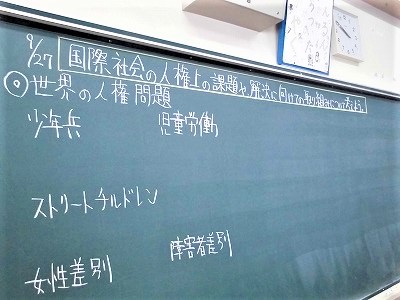 9/27 国際社会の人権上の課題や解決に向けての取り組みについて考えよう。
◎世界の人権問題
少年兵 児童労働
ストリートチルドレン
障害者差別
女性差別